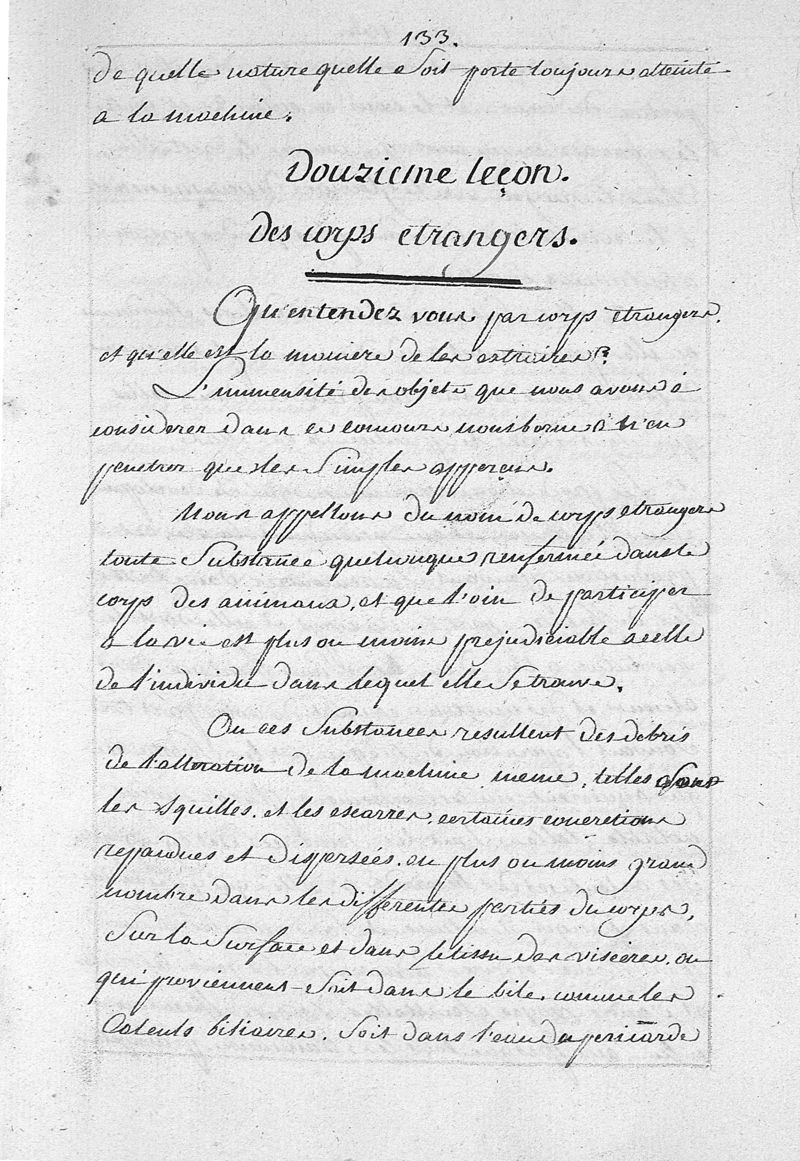 133.
de quelle nature quelle soit porte toujours atteinte
a la machine.
Douzieme leçon.
Des corps etrangers.
Qu'entendez vous par corps etrangers.
et qu'elle est la maniere de les extraires?
L'immensité des objets que nous avons á
considerer dans ce concours nous borne á n'en
penetrer que les simples apperçus.
Nous appellons du nom de corps etrangers
toute substance quelconque renfermée dans le
corps des animaux, et que loin de participer
a la vie est plus ou moins prejudiciable a celle
de l'individu dans lequel elle se trouve.
Ou ces substances resultent des debris
de l'alteration de la machine meme, telles sont
les squilles, et les escarres, certaines concretions
repandues et dispersées. en plus ou moins grand
nombre dans les differentes parties du corps,
sur la surface et dans le tissu des visceres, ou
qui proviennent soit dans le bile, comme les
Calculs biliaires. Soit dans l'eau du pericarde